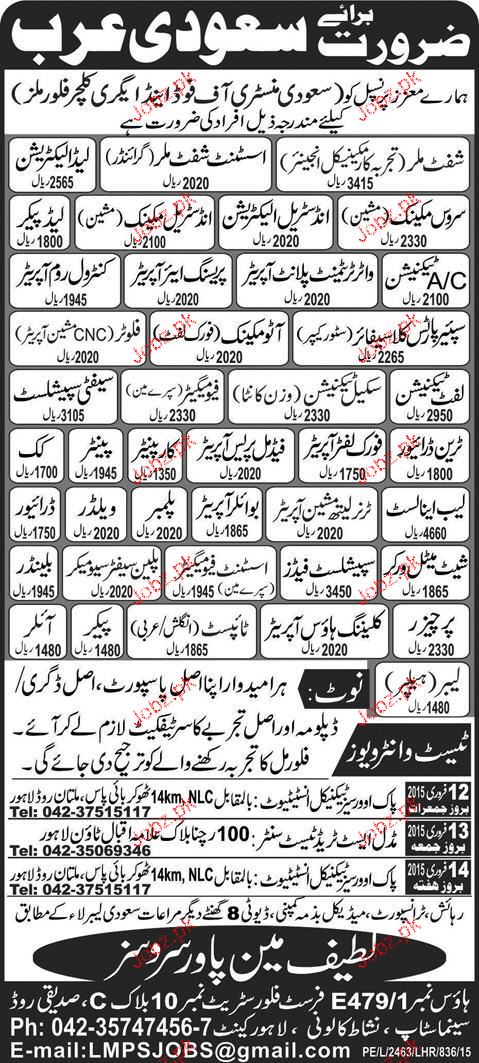 ضرورت برائے سعودی عرب
ہمارے معزز پرنسپل کو (سعودی منسٹری آف فوڈ اینڈ ایگری کلچر فلور ملز)
کیلئے مندرجہ ذیل افراد کی ضرورت ہے
شفٹ ملر (تجربہ کار مکینیکل انجینئر) 3415 ریال اسسٹنٹ شفٹ ملر (گرائنڈر) 2020 ریال لیڈ الیکٹریشن 2565 ریال
سروس مکینک (مشین) 2330 ریال انڈسٹریل الیکٹریشن 2020 ریال انڈسٹریل مکینک (مشین) 2100 ریال لیڈ پیکر 1800 ریال
A/C ٹیکنیشن 2100 ریال واٹر ٹرٹمنٹ پلانٹ آپریٹر 2020 ریال پریسنگ ایئر آپریٹر 2020 ریال کنٹرول روم آپریٹر 1945 ریال
سپئیر پارٹس کلاسیفائر (سٹور کیپر) 2265 ریال آٹو مکینک (فورک لفٹ) 2020 ریال فلوٹر (CNC مشین آپریٹر) 2020 ریال
لفٹ ٹیکنیشن 2950 ریال سکیل ٹیکنیشن (وزن کانٹا) 2330 ریال فیومیگیٹر (سپرے مین) 2330 ریال سیفٹی سپیشلسٹ 3105 ریال
ٹرین ڈرائیور 1800 ریال فورک لفٹر آپریٹر 1750 ریال فیڈمل پریس آپریٹر 2020 ریال کارپینٹر 1350 ریال پینٹر 1945 ریال کک 1700 ریال
لیب اینالسٹ 4660 ریال ٹرنر لیتھ مشین آپریٹر 2020 ریال بوائلر آپریٹر 1865 ریال پلمبر 2020 ریال ویلڈر 2020 ریال ڈرائیور 1750 ریال
شیٹ میٹل ورکر 1865 ریال سپیشلسٹ فیڈز 3450 ریال اسسٹنٹ فیومیگیٹر (سپرے مین) 1945 ریال پلین سیفٹر سیومیکر 2020 ریال بلینڈر 1945 ریال
پرچیزر 2330 ریال کلیننگ ہاؤس آپریٹر 2020 ریال ٹائپسٹ (انگلش/عربی) 1865 ریال پیکر 1480 ریال آئلر 1480 ریال
لیبر (ہیلپر) 1480 ریال
نوٹ: ہر امیدوار اپنا اصل پاسپورٹ، اصل ڈگری/
ڈپلومہ اور اصل تجربے کا سرٹیفکیٹ لازم لے کر آئے۔
فلور مل کا تجربہ رکھنے والے کو ترجیح دی جائے گی۔
ٹیسٹ و انٹرویوز
12 فروری 2015 بروز جمعرات پاک اوورسیز ٹیکنیکل انسٹیٹیوٹ: بالمقابل 14km, NLC ٹھوکر بائی پاس، ملتان روڈ لاہور
Tel: 042-37515117
13 فروری 2015 بروز جمعہ مڈل ایسٹ ٹریڈ ٹیسٹ سنٹر: 100 رچنا بلاک علامہ اقبال ٹاؤن لاہور
Tel: 042-35069346
14 فروری 2015 بروز ہفتہ پاک اوورسیز ٹیکنیکل انسٹیٹیوٹ: بالمقابل 14km, NLC ٹھوکر بائی پاس، ملتان روڈ لاہور
Tel: 042-37515117
رہائش، ٹرانسپورٹ، میڈیکل بذمہ کمپنی، ڈیوٹی 8 گھنٹے دیگر مراعات سعودی لیبر لاء کے مطابق
لطیف مین پاور سروسز
ہاؤس نمبر E479/1 فرسٹ فلور سٹریٹ نمبر 10 بلاک C، صدیقی روڈ
سینما سٹاپ، نشاط کالونی، لاہور کینٹ Ph: 042-35747456-7
E-mail: LMPSJOBS@gmail.com PE/L/2463/LHR/836/15